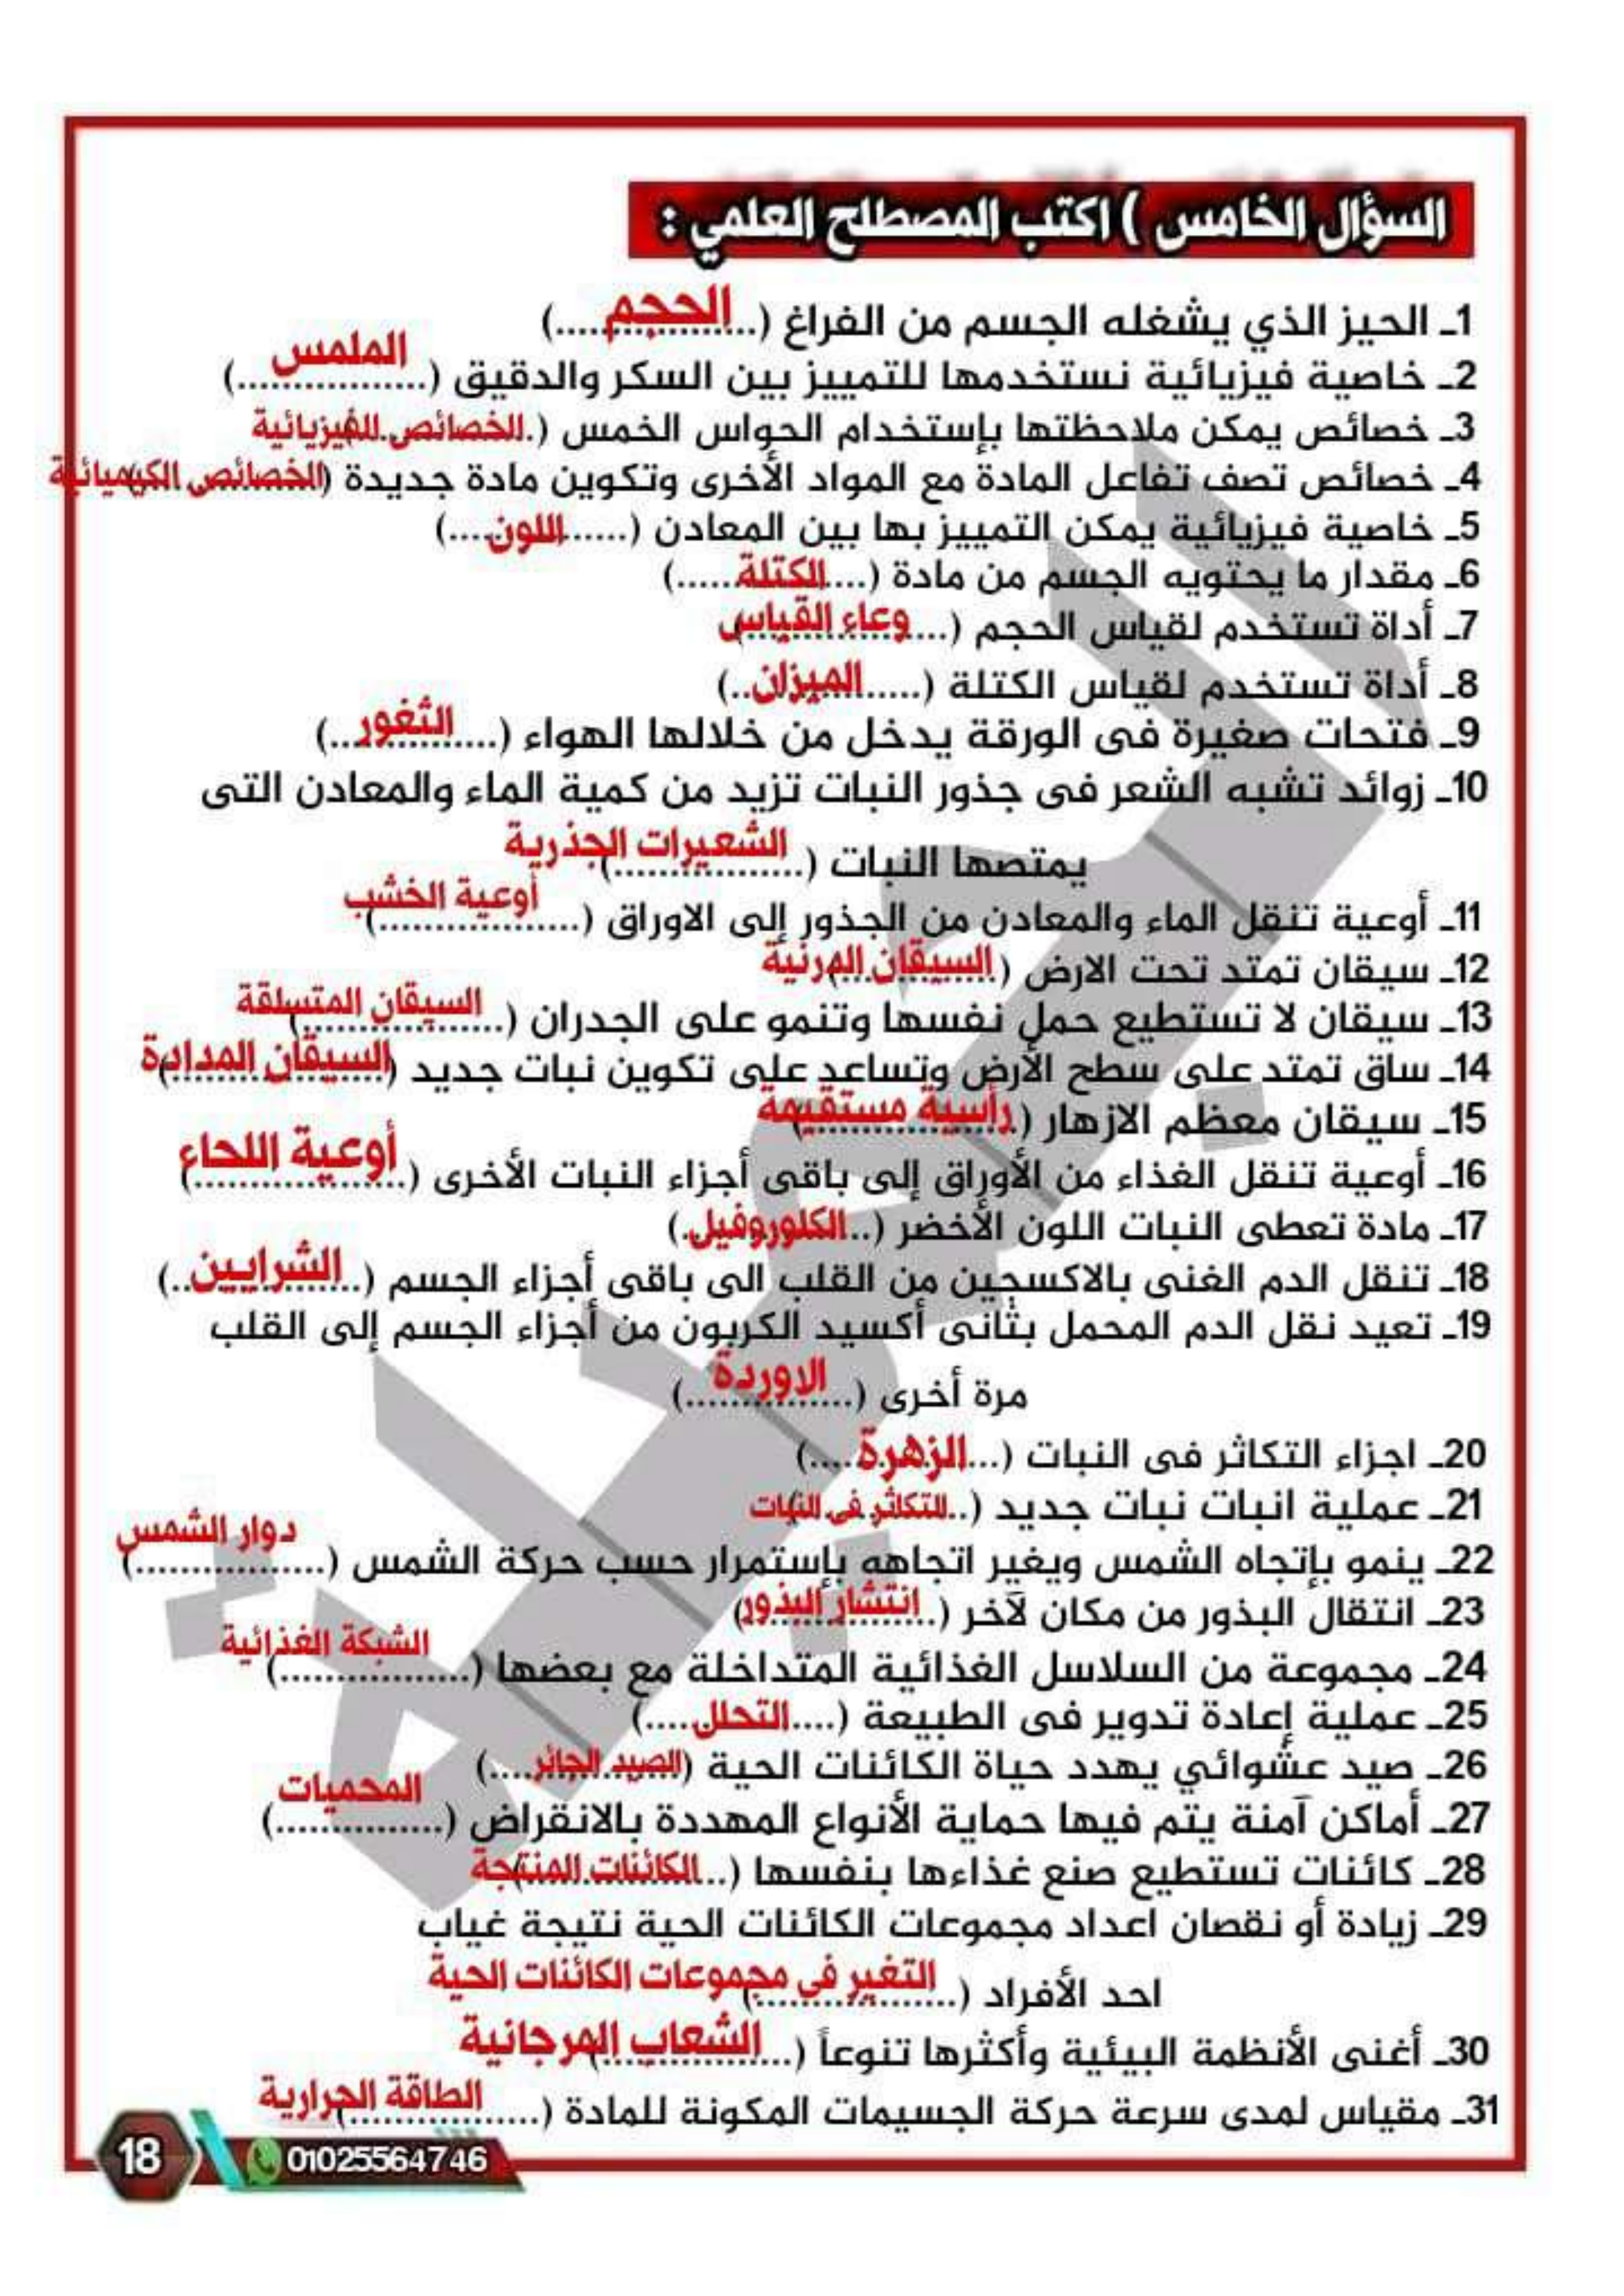 السؤال الخامس ) اكتب المصطلح العلمي :
1ـ الحيز الذي يشغله الجسم من الفراغ (....الحجم....)
2ـ خاصية فيزيائية نستخدمها للتمييز بين السكر والدقيق (....الملمس....)
3ـ خصائص يمكن ملاحظتها بإستخدام الحواس الخمس (.الخصائص الفيزيائية)
4ـ خصائص تصف تفاعل المادة مع المواد الأخرى وتكوين مادة جديدة (الخصائص الكيميائية)
5ـ خاصية فيزيائية يمكن التمييز بها بين المعادن (......اللون....)
6ـ مقدار ما يحتويه الجسم من مادة (....الكتلة......)
7ـ أداة تستخدم لقياس الحجم (...وعاء القياس)
8ـ أداة تستخدم لقياس الكتلة (......الميزان..)
9ـ فتحات صغيرة فى الورقة يدخل من خلالها الهواء (....الثغور...)
10ـ زوائد تشبه الشعر فى جذور النبات تزيد من كمية الماء والمعادن التى
يمتصها النبات (الشعيرات الجذرية)
11ـ أوعية تنقل الماء والمعادن من الجذور إلى الاوراق (أوعية الخشب)
12ـ سيقان تمتد تحت الارض (السيقان الدرنية)
13ـ سيقان لا تستطيع حمل نفسها وتنمو على الجدران (السيقان المتسلقة)
14ـ ساق تمتد على سطح الأرض وتساعد على تكوين نبات جديد (السيقان المدادة)
15ـ سيقان معظم الازهار (.رأسية مستقيمة)
16ـ أوعية تنقل الغذاء من الأوراق إلى باقى أجزاء النبات الأخرى (.أوعية اللحاء)
17ـ مادة تعطى النبات اللون الأخضر (..الكلوروفيل.)
18ـ تنقل الدم الغنى بالاكسجين من القلب الى باقى أجزاء الجسم (..الشرايين..)
19ـ تعيد نقل الدم المحمل بثانى أكسيد الكربون من أجزاء الجسم إلى القلب
مرة أخرى (..الاوردة...)
20ـ اجزاء التكاثر فى النبات (...الزهرة....)
21ـ عملية انبات نبات جديد (..التكاثر فى النبات)
22ـ ينمو بإتجاه الشمس ويغير اتجاهه بإستمرار حسب حركة الشمس (دوار الشمس)
23ـ انتقال البذور من مكان لآخر (..انتشار البذور)
24ـ مجموعة من السلاسل الغذائية المتداخلة مع بعضها (الشبكة الغذائية)
25ـ عملية إعادة تدوير فى الطبيعة (....التحلل....)
26ـ صيد عشوائي يهدد حياة الكائنات الحية (الصيد الجائر....)
27ـ أماكن آمنة يتم فيها حماية الأنواع المهددة بالانقراض (..المحميات....)
28ـ كائنات تستطيع صنع غذاءها بنفسها (..الكائنات المنتجة)
29ـ زيادة أو نقصان اعداد مجموعات الكائنات الحية نتيجة غياب
احد الأفراد (.التغير فى مجموعات الكائنات الحية)
30ـ أغنى الأنظمة البيئية وأكثرها تنوعاً (...الشعاب المرجانية)
31ـ مقياس لمدى سرعة حركة الجسيمات المكونة للمادة (....الطاقة الحرارية)
18
01025564746